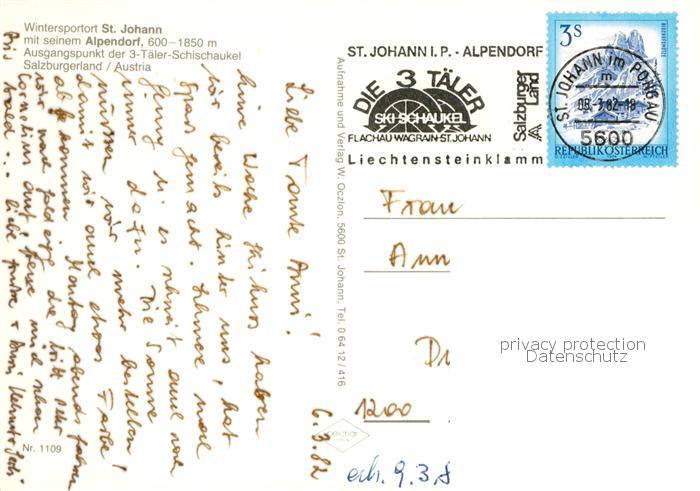 Wintersportort St. Johann
mit seinem Alpendorf, 600–1850 m
Ausgangspunkt der 3-Täler-Schischaukel
Salzburgerland / Austria
Nr. 1109
6.3.82
Liebe Tante Anni!
Eine Woche Skikurs haben
wir bereits hinter uns, hat
Spass gemacht. Schnee noch
genug u. es schneit auch noch
immer dazu. Die Sonne
müssen wir mehr bestellen
damit wir auch etwas Farbe
abbekommen. Montag abends fahren
wir
Cornelius auf
Bis bald...
Aufnahme und Verlag W. Oczlon, 5600 St. Johann, Tel. 0 64 12 / 416
ST. JOHANN I. P. - ALPENDORF
DIE 3 TÄLER
SKI-SCHAUKEL
FLACHAU WAGRAIN-ST. JOHANN
Liechtensteinklamm
Salzburger
Land
ST JOHANN im PONGAU
m
08.-3.82-18
5600
3 S
BISCHOFSMÜTZE
REPUBLIK ÖSTERREICH
Frau
Ann
Di
1200
erh. 9.3.8
privacy protection
Datenschutz